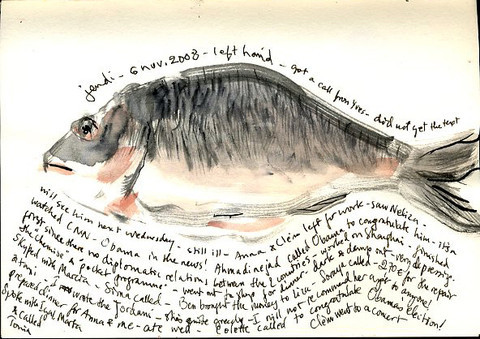 jeudi - 6 nov. 2008 - left hand - got a call from Yves - did not get the text
will see him next Wednesday - still ill - Anna & Clém left for work - saw Nehien -
watched CNN - Obama in the news! Ahmadinejad called Obama to congratulate him - it's a
first since there no diplomatic relations between the 2 countries - worked on Shanghai - finished
the "chemise" & pocket programme - went out to shop for dinner - dark & damp out - very depressing -
Skyped with Marcia - Sima called - Ben brought the honey to Lisa - Sonya called - 270€ for the repair
of Toni - wrote the Jordami - she's quite greedy - I will not recommend her again to anyone!
prepared dinner for Anna & me - ate well - Colette called to congratulate Obama's election!
Spoke with Igal Marta
& called Clém went to a concert
Tonia